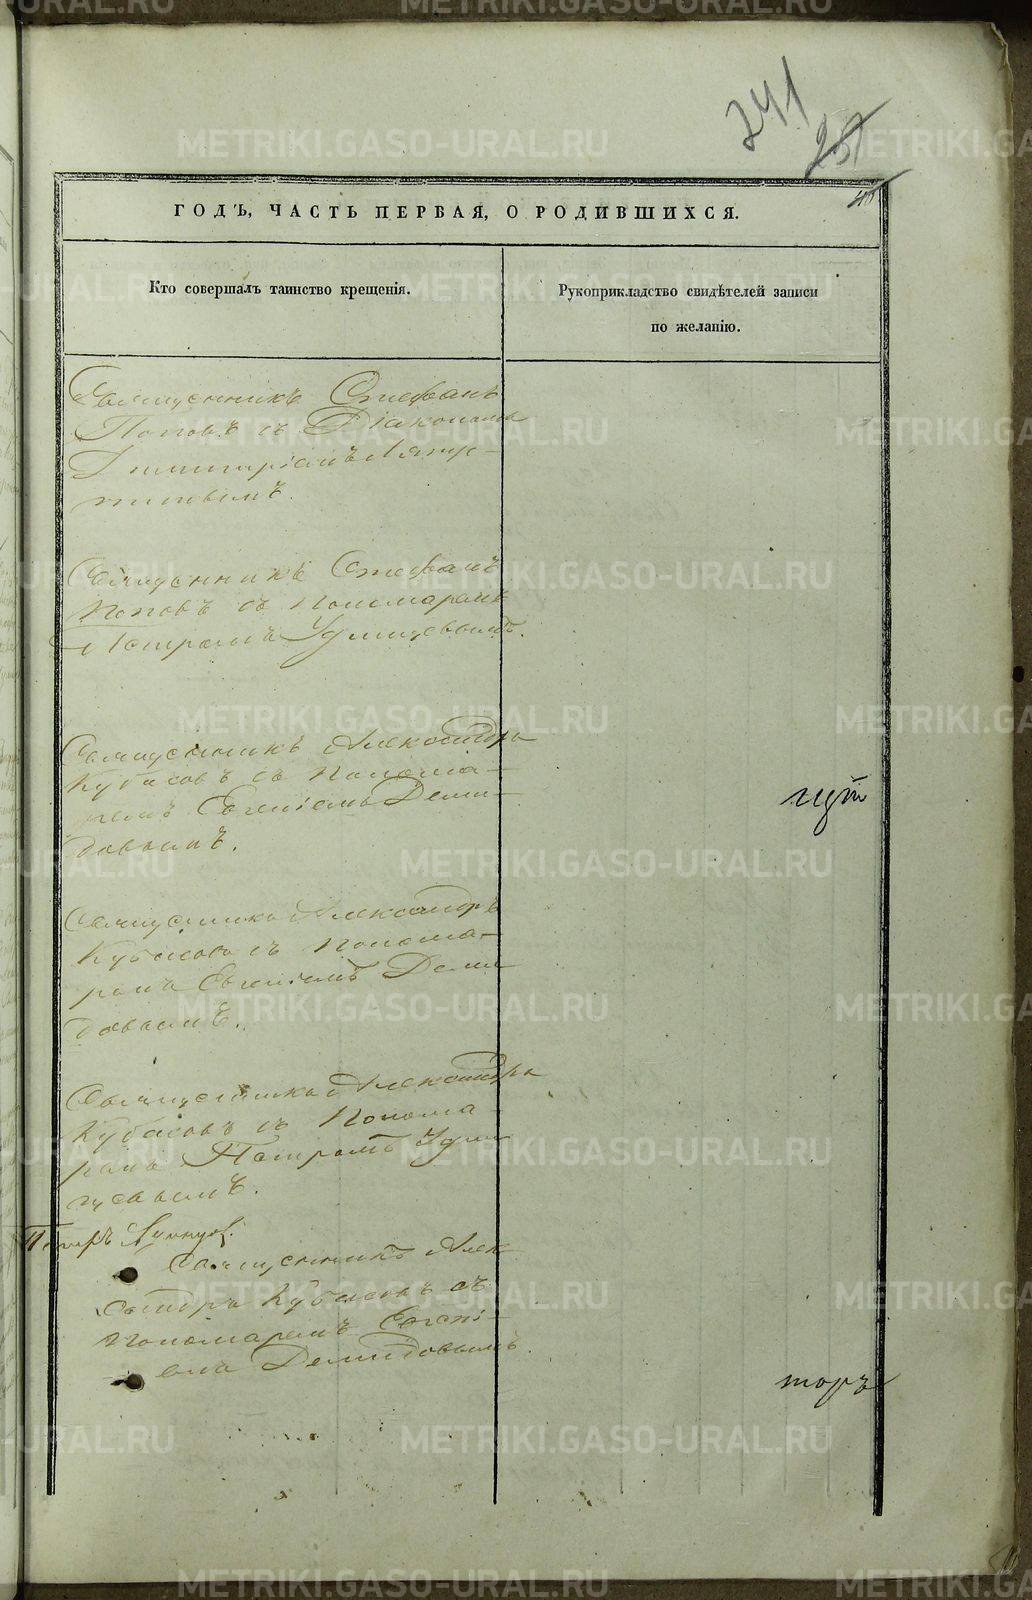 241
251
ГОДЪ, ЧАСТЬ ПЕРВАЯ, О РОДИВШИХСЯ.
Кто совершалъ таинство крещенія.
Рукоприкладство свидѣтелей записи
по желанію.
Священникъ Стефанъ
Поповъ съ Діакономъ
Димитріемъ
Священникъ Стефанъ
Поповъ съ Пономаремъ
Петромъ Удинцевымъ.
Священникъ Александръ
Кубасовъ съ Понома-
ремъ Евгеніемъ Деми-
довымъ.
Священникъ Александръ
Кубасовъ съ Понома-
ремъ Евгеніемъ Деми
довымъ.
Священникъ Александръ
Кубасовъ съ Понома-
ремъ Петромъ Удин
цевымъ.
Священникъ Алек
сандръ Кубасовъ съ
Пономаремъ Евгені-
емъ Демидовымъ.
торъ
METRIKI.GASO-URAL.RU